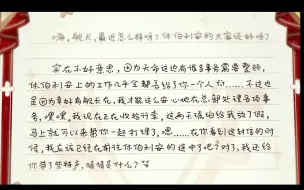 嗨，舰长，最近怎么样呀？休伯利安的大家还好吗？
实在不好意思，因为天命这边有很多事务需要整顿，
休伯利安上的工作几乎全都丢给了你一个人……不过也
是因为幸好有舰长，我才能这么安心地在总部处理各项事
务，嘿嘿，我现在正在收拾行李，这两天德怕给我放了假，
马上就可以来帮你一起打理了。嗯……在你看到这封信的时
候，我应该已经在前往休伯利安的途中了吧？对了，我还给
你带了些特产，猜猜是什么？